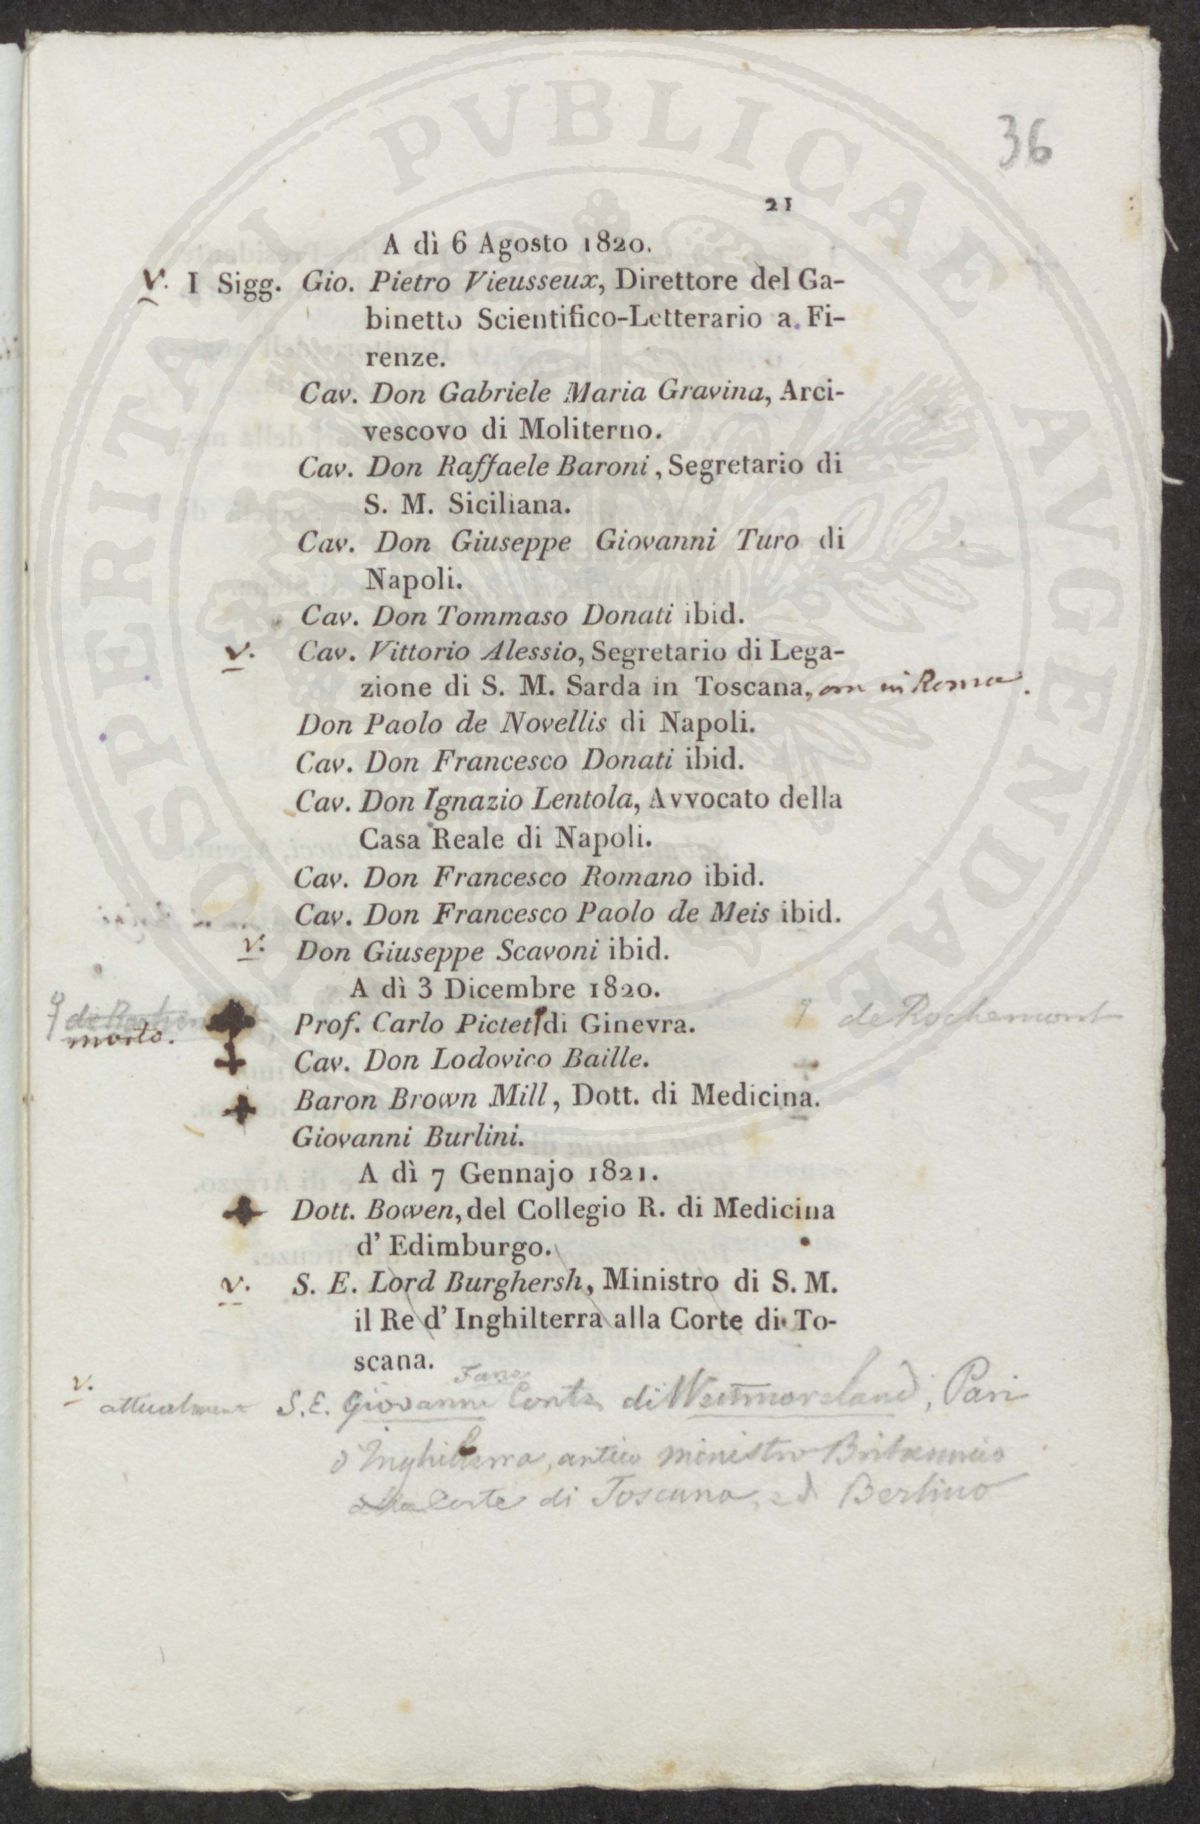 36
21
A dì 6 Agosto 1820.
v. I Sigg. Gio. Pietro Vieusseux, Direttore del Ga-
binetto Scientifico-Letterario a Fi-
renze.
Cav. Don Gabriele Maria Gravina, Arci-
vescovo di Moliterno.
Cav. Don Raffaele Baroni, Segretario di
S. M. Siciliana.
Cav. Don Giuseppe Giovanni Turo di
Napoli.
Cav. Don Tommaso Donati ibid.
v. Cav. Vittorio Alessio, Segretario di Lega-
zione di S. M. Sarda in Toscana, ora in Roma.
Don Paolo de Novellis di Napoli.
Cav. Don Francesco Donati ibid.
Cav. Don Ignazio Lentola, Avvocato della
Casa Reale di Napoli.
Cav. Don Francesco Romano ibid.
Cav. Don Francesco Paolo de Meis ibid.
v. Don Giuseppe Scavoni ibid.
A dì 3 Dicembre 1820.
Prof. Carlo Pictet di Ginevra. de Rochemont
morto.
Cav. Don Lodovico Baille.
Baron Brown Mill, Dott. di Medicina.
Giovanni Burlini.
A dì 7 Gennajo 1821.
Dott. Bowen, del Collegio R. di Medicina
d' Edimburgo.
v. S. E. Lord Burghersh, Ministro di S. M.
il Re d' Inghilterra alla Corte di To-
scana.
Fane
v. attualmente S. E. Giovanni Conte di Westmoreland, Pari
d'Inghilterra, antico ministro Britannico
alla Corte di Toscana, ed Berlino
PROSPERITATI PVBLICAE AVGENDAE